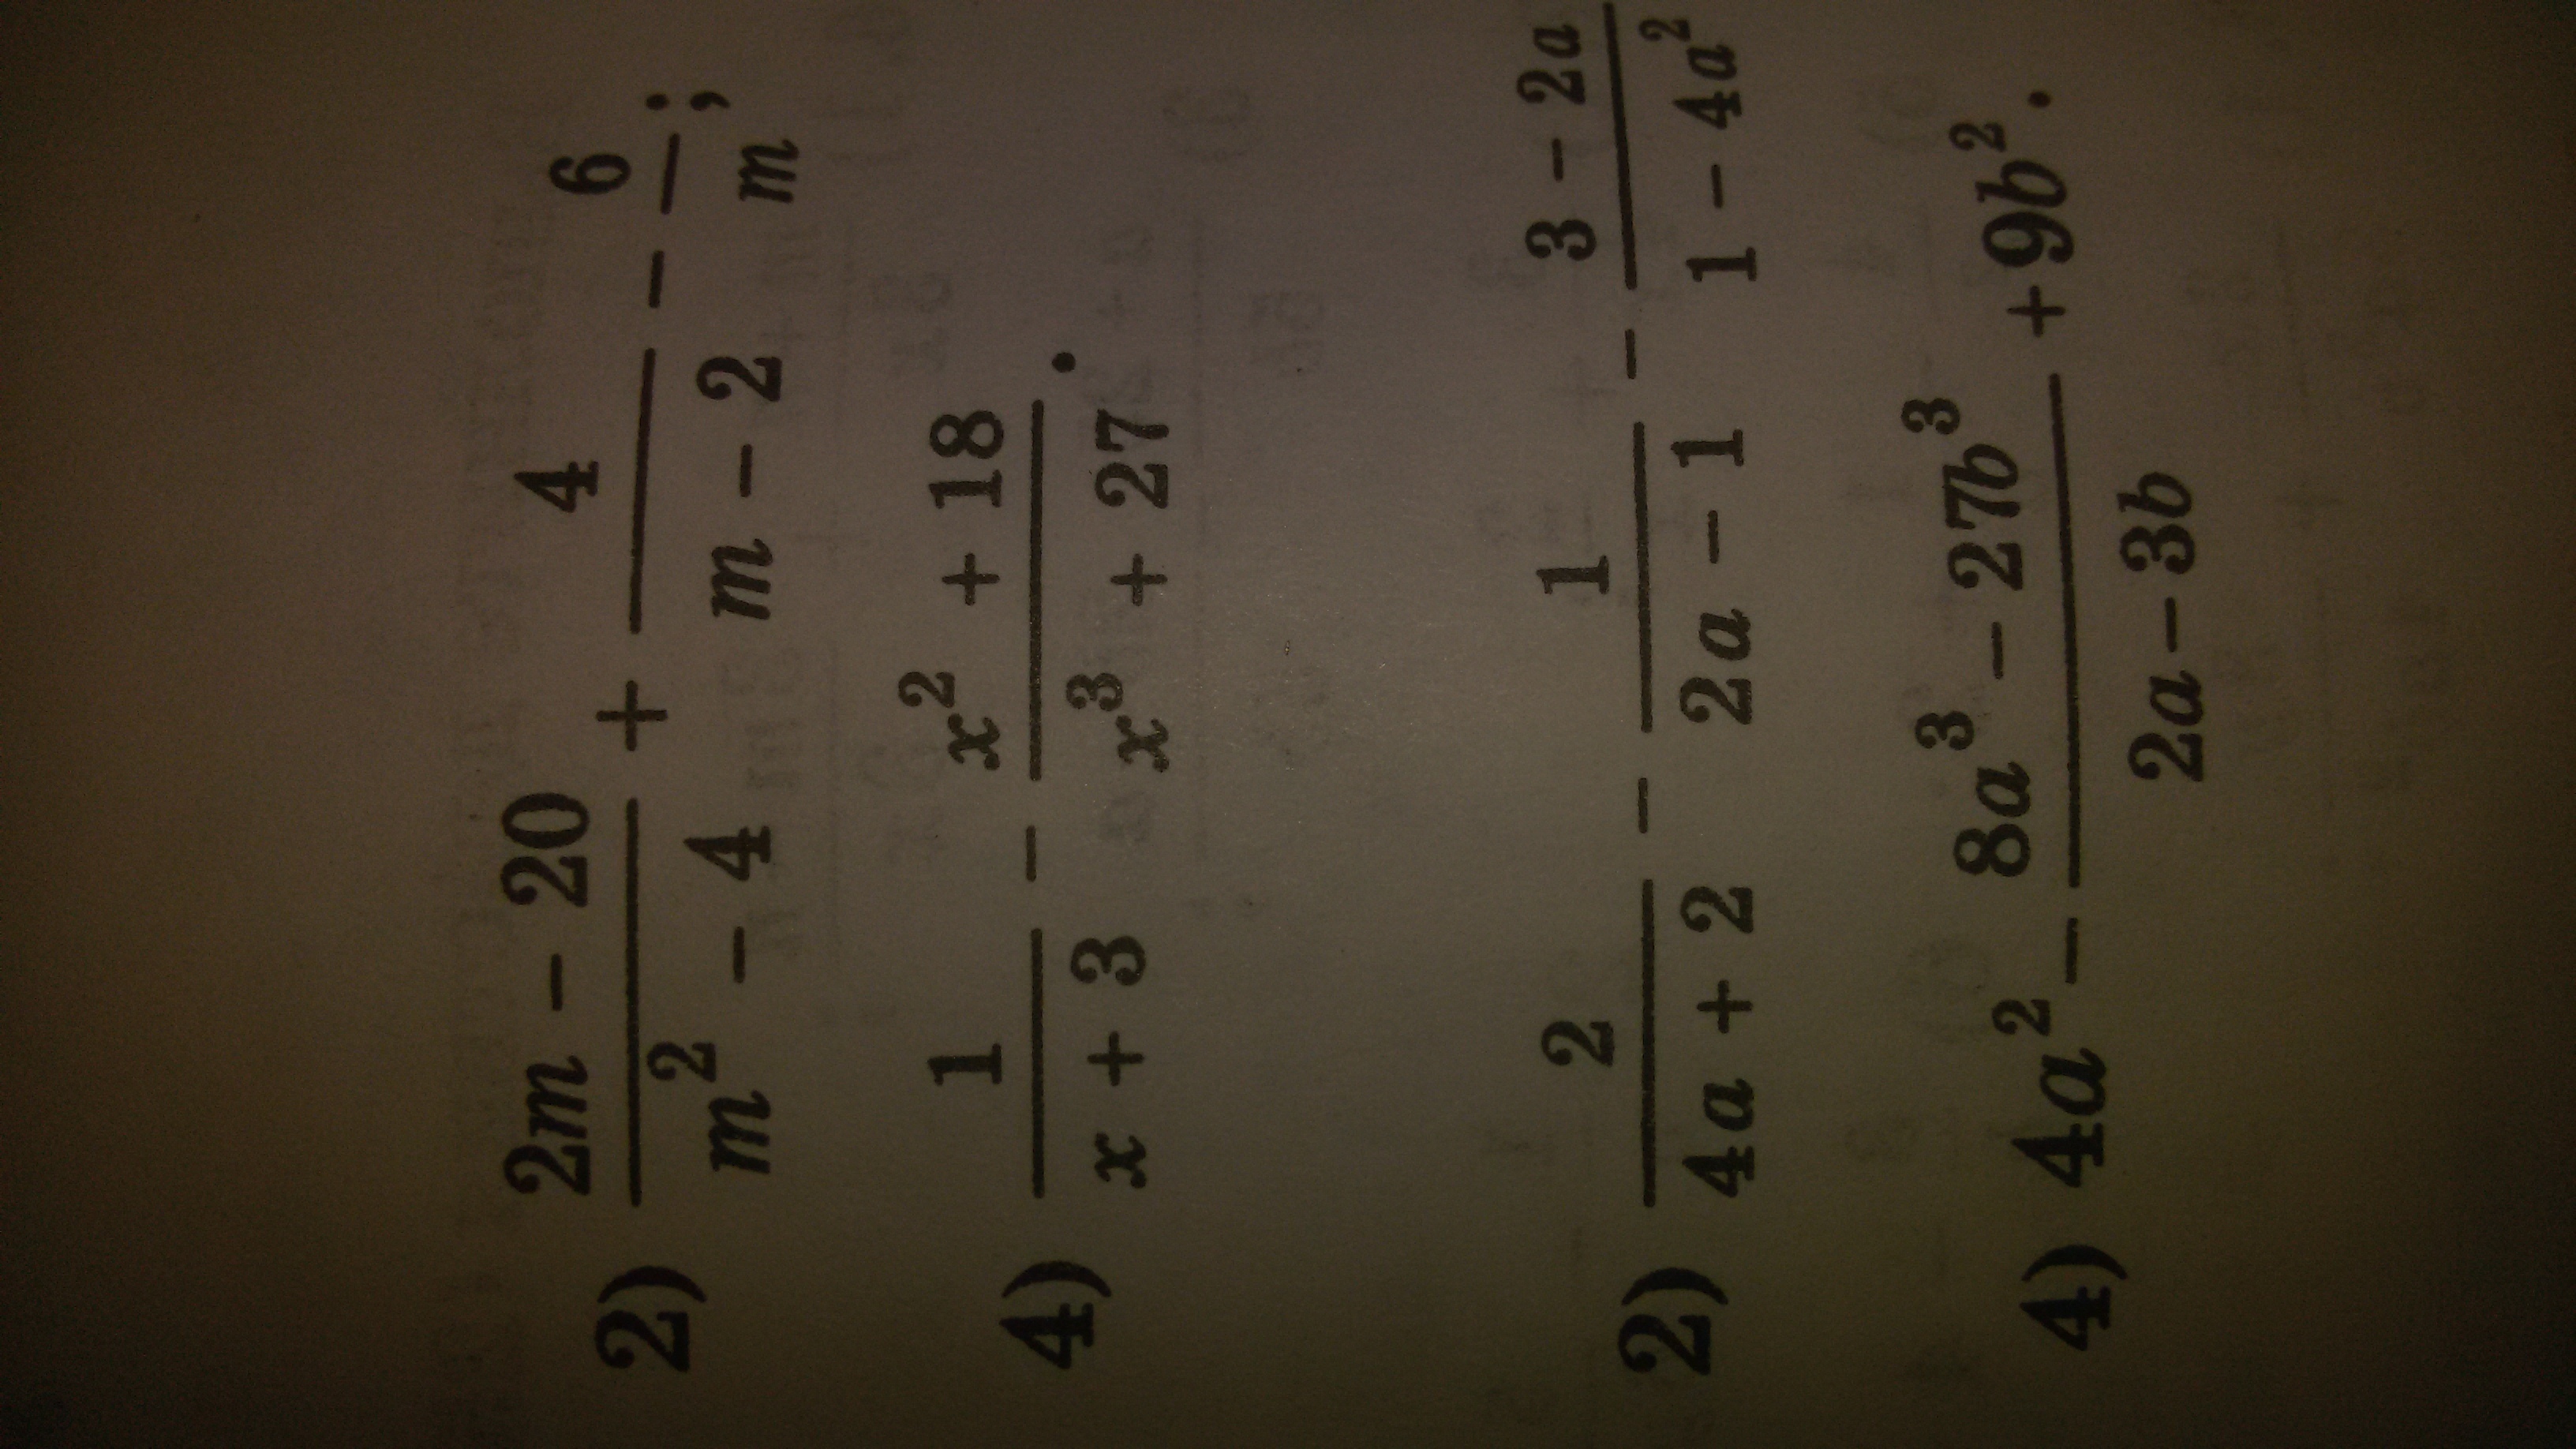 2) \frac{2m - 20}{m^2 - 4} + \frac{4}{m - 2} - \frac{6}{m};
4) \frac{1}{x + 3} - \frac{x^2 + 18}{x^3 + 27}.
2) \frac{2}{4a + 2} - \frac{1}{2a - 1} - \frac{3 - 2a}{1 - 4a^2}
4) 4a^2 - \frac{8a^3 - 27b^3}{2a - 3b} + 9b^2.